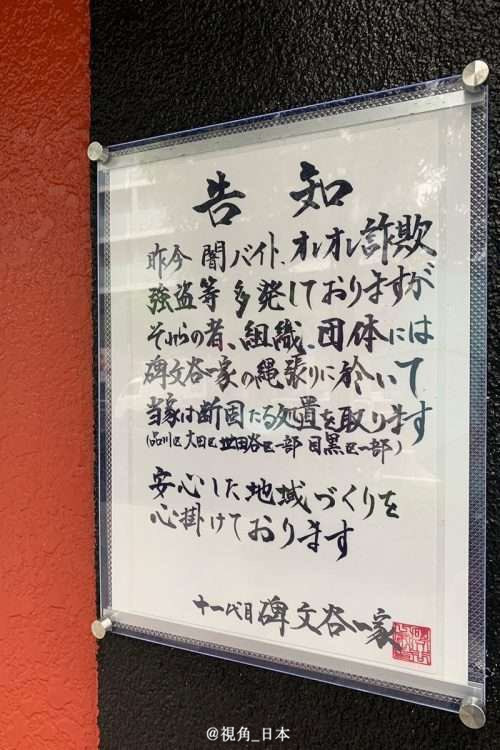 告知
昨今 闇バイト、オレオレ詐欺
強盗等 多発しておりますが
それらの者、組織、団体には
碑文谷一家の縄張りに於いて
当家は断固たる処置を取ります
(品川区 大田区 世田谷区一部 目黒区一部)
安心した地域づくりを
心掛けております
十一代目 碑文谷一家
@視角_日本